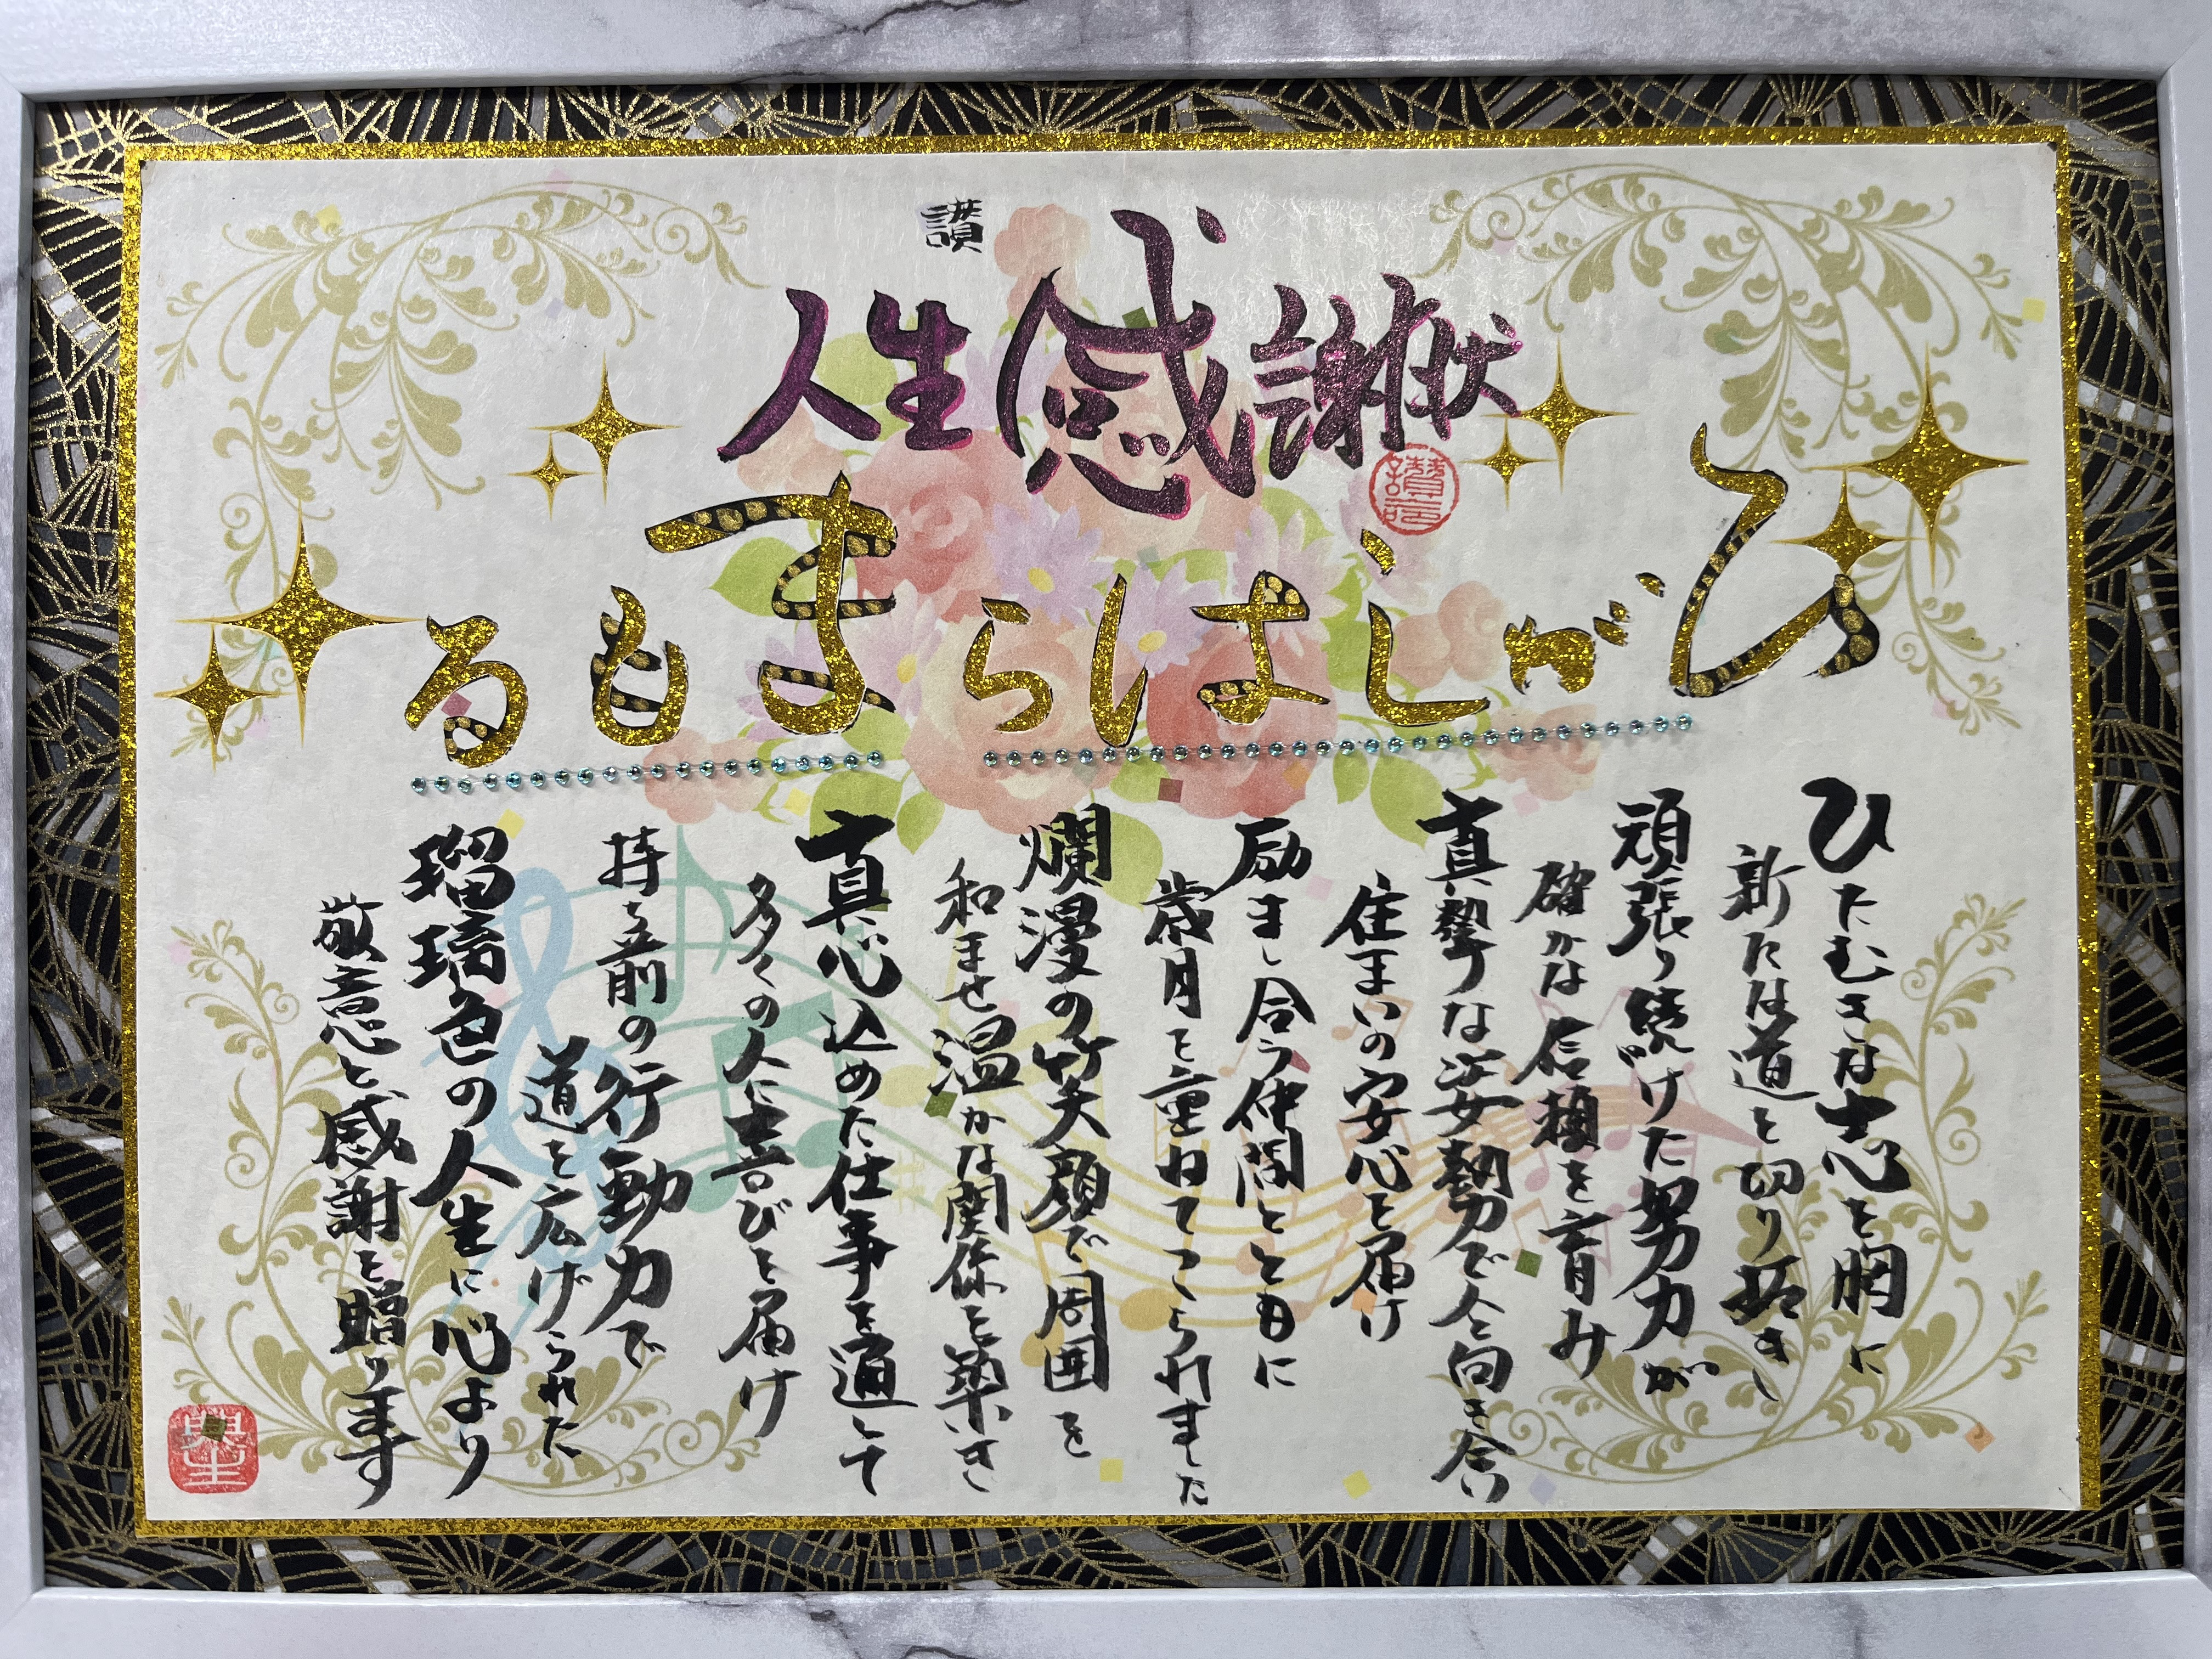 讃
人生感謝状
ひがしはらまもる
ひたむきな志を胸に
新たな道を切り拓き
頑張り続けた努力が
確かな信頼を育み
真摯な姿勢で人と向き合い
住まいの安心を届け
励まし合う仲間とともに
歳月を重ねてこられました
爛漫の笑顔で周囲を
和ませ温かな関係を築き
真心込めた仕事を通して
多くの人に喜びを届け
持ち前の行動力で
道を広げられた
瑠璃色の人生に心より
敬意と感謝を贈ります